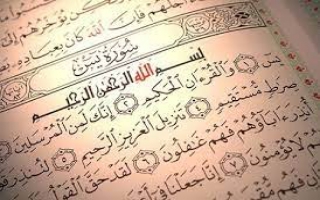 وَلَٰكِن يُؤَخِّرُهُمْ
أَجَلُهُمْ فَإِنَّ ٱللَّهَ كَانَ بِعِبَادِهِۦ
سُورَةُ يسٓ
بِسْمِ ٱللَّهِ ٱلرَّحْمَٰنِ ٱلرَّحِيمِ
يسٓ ١ وَٱلْقُرْءَانِ ٱلْحَكِيمِ ٢ إِنَّكَ لَمِنَ ٱلْمُرْسَلِينَ
صِرَٰطٍ مُّسْتَقِيمٍ ٤ تَنزِيلَ ٱلْعَزِيزِ ٱلرَّحِيمِ ٥ لِتُنذِرَ
أُنذِرَ ءَابَآؤُهُمْ فَهُمْ غَٰفِلُونَ ٦ لَقَدْ حَقَّ ٱلْقَوْلُ
لَا يُؤْمِنُونَ ٧ إِنَّا جَعَلْنَا فِىٓ
فَهُم مُّقْمَحُونَ